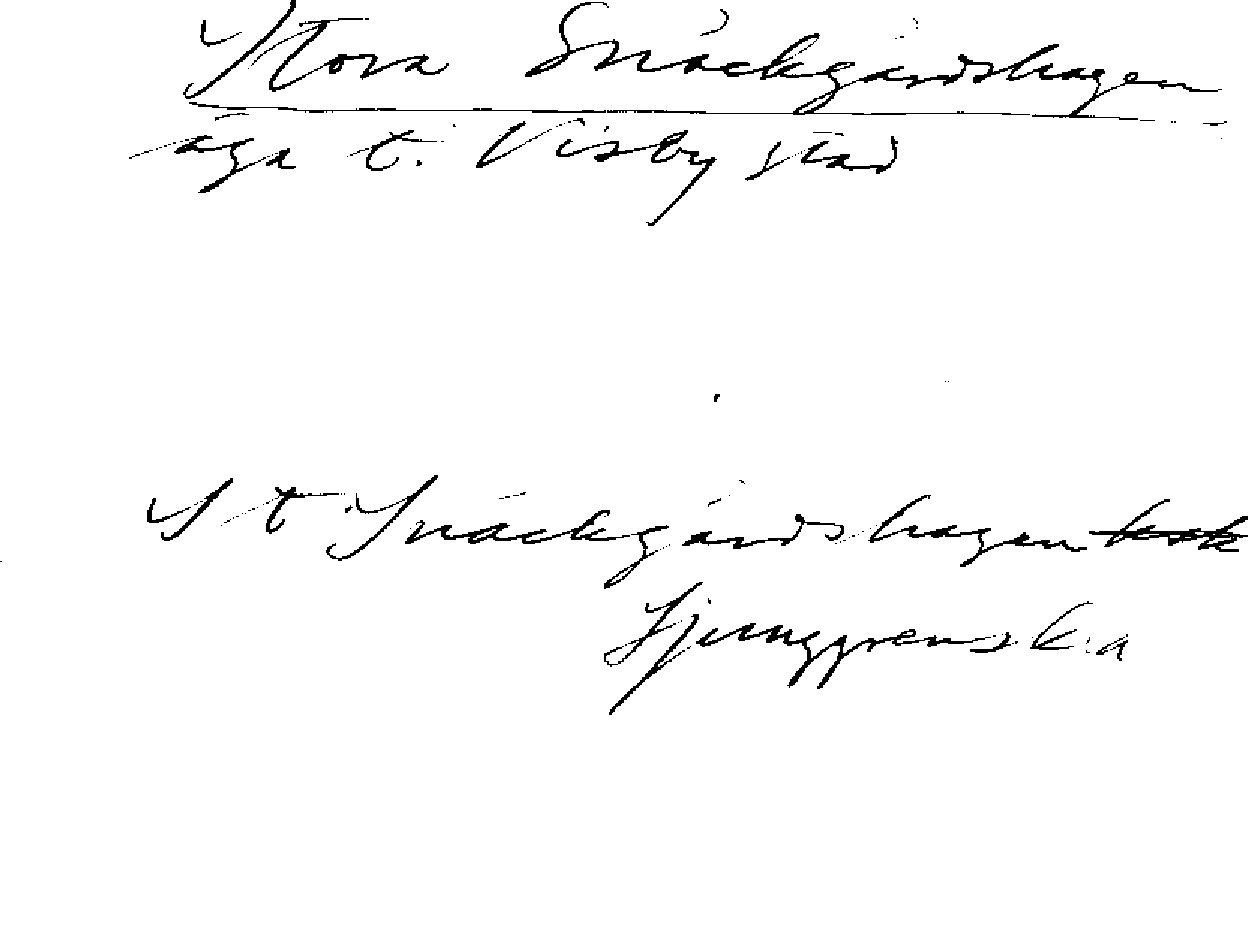 Stora Snäckgärdshagen
äga t. Visby stad
St Snäckgärdshagen
Ljunggrenska